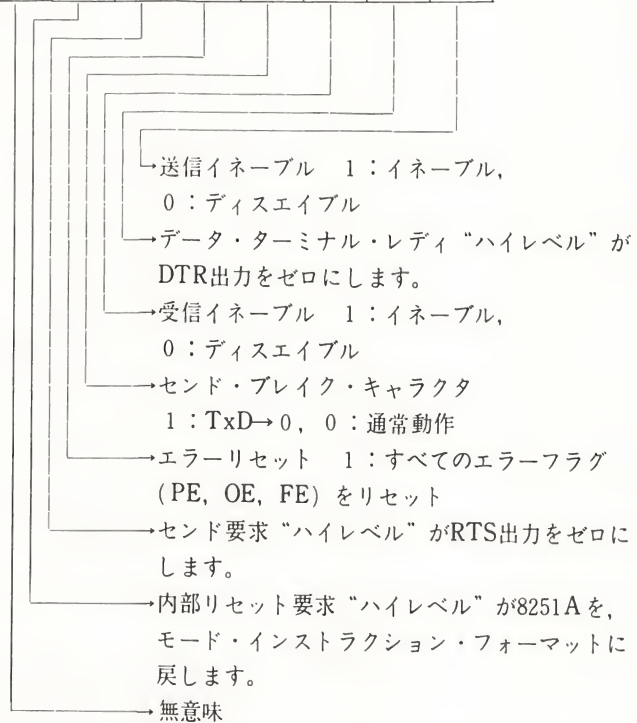 送信イネーブル　1：イネーブル,
0：ディスエイブル
データ・ターミナル・レディ“ハイレベル”が
DTR出力をゼロにします。
受信イネーブル　1：イネーブル,
0：ディスエイブル
センド・ブレイク・キャラクタ
1：TxD→0, 0：通常動作
エラーリセット　1：すべてのエラーフラグ
(PE, OE, FE) をリセット
センド要求“ハイレベル”がRTS出力をゼロに
します。
内部リセット要求“ハイレベル”が8251Aを,
モード・インストラクション・フォーマットに
戻します。
無意味